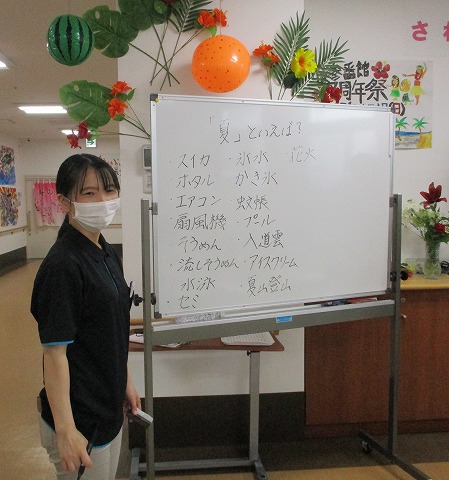 「夏」といえば？
・スイカ ・氷水 ・花火
・ホタル ・かき氷
・エアコン ・蚊帳
・扇風機 ・プール
・そうめん ・入道雲
・流しそうめん ・アイスクリーム
・水泳 ・夏山登山
・セミ
さ
参番館
周年祭